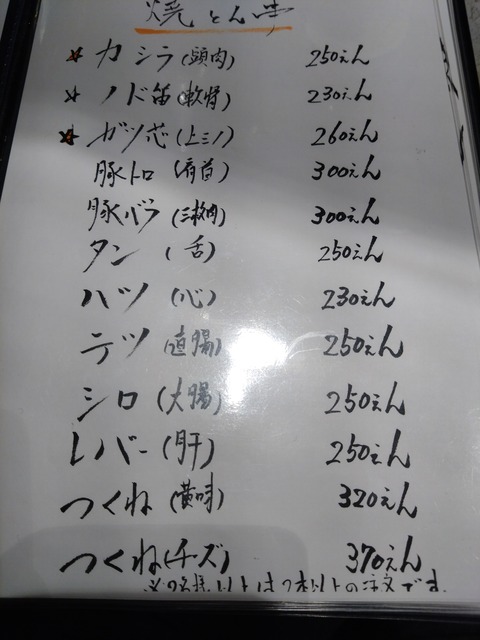 焼とん串
☆カシラ(頭肉) 250えん
☆ノド笛(軟骨) 230えん
☆ガツ芯(上ミノ) 260えん
豚トロ(肩首) 300えん
豚バラ(三枚肉) 300えん
タン(舌) 250えん
ハツ(心) 230えん
テツ(直腸) 250えん
シロ(大腸) 250えん
レバー(肝) 250えん
つくね(黄味) 320えん
つくね(チーズ) 370えん
の注文です